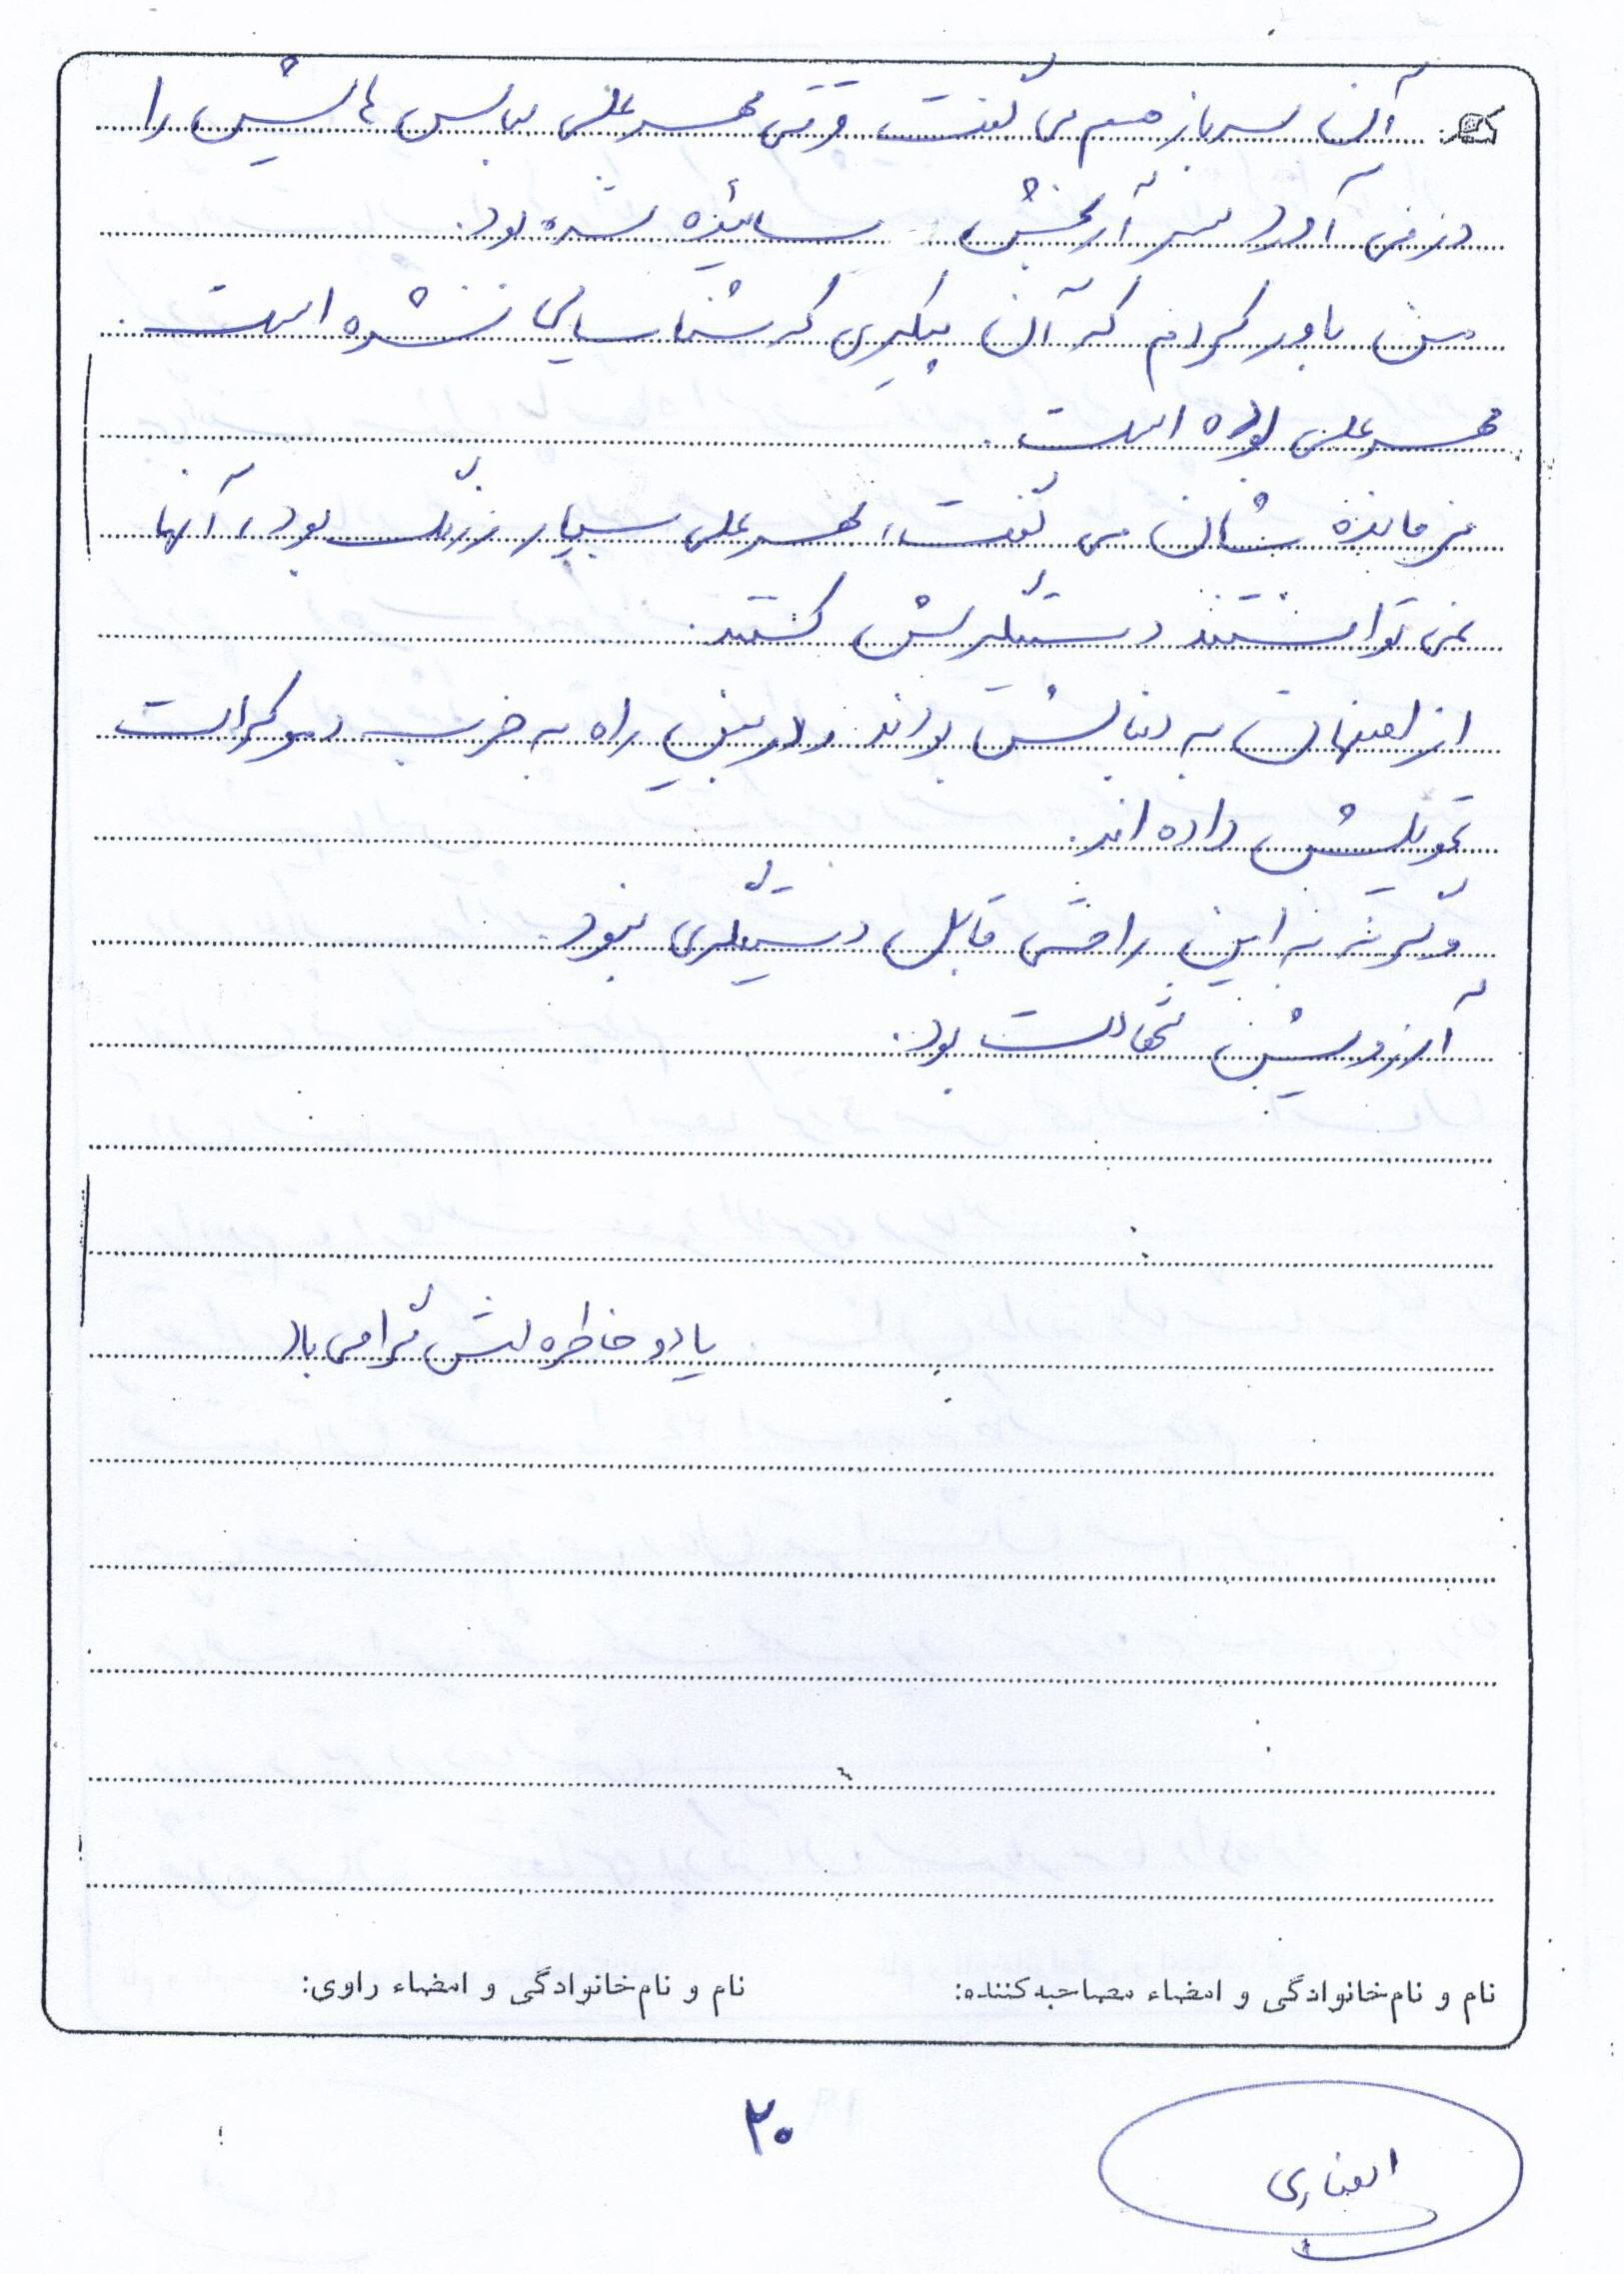 آن سرباز هم می گفت وقتی محمد علی لباس هایش را
در می آورد سر آرنجش ساییده شده بود.
من باور کردم که آن پیکری که شناسایی نشده است
محمد علی بوده است.
فرمانده شان می گفت، محمد علی بسیار زرنگ بود، آنها
نمی توانستند دستگیرش کنند.
از اصفهان به دنبالش بودند و در بین راه به حزب دموکرات
تحویلش داده اند.
وگرنه به این راحتی قابل دستگیری نبود.
آرزویش شهادت بود.
یاد و خاطره اش گرامی باد
نام و نام‌خانوادگی و امضاء مصاحبه‌کننده:
نام و نام‌خانوادگی و امضاء راوی:
۲۰
انصاری